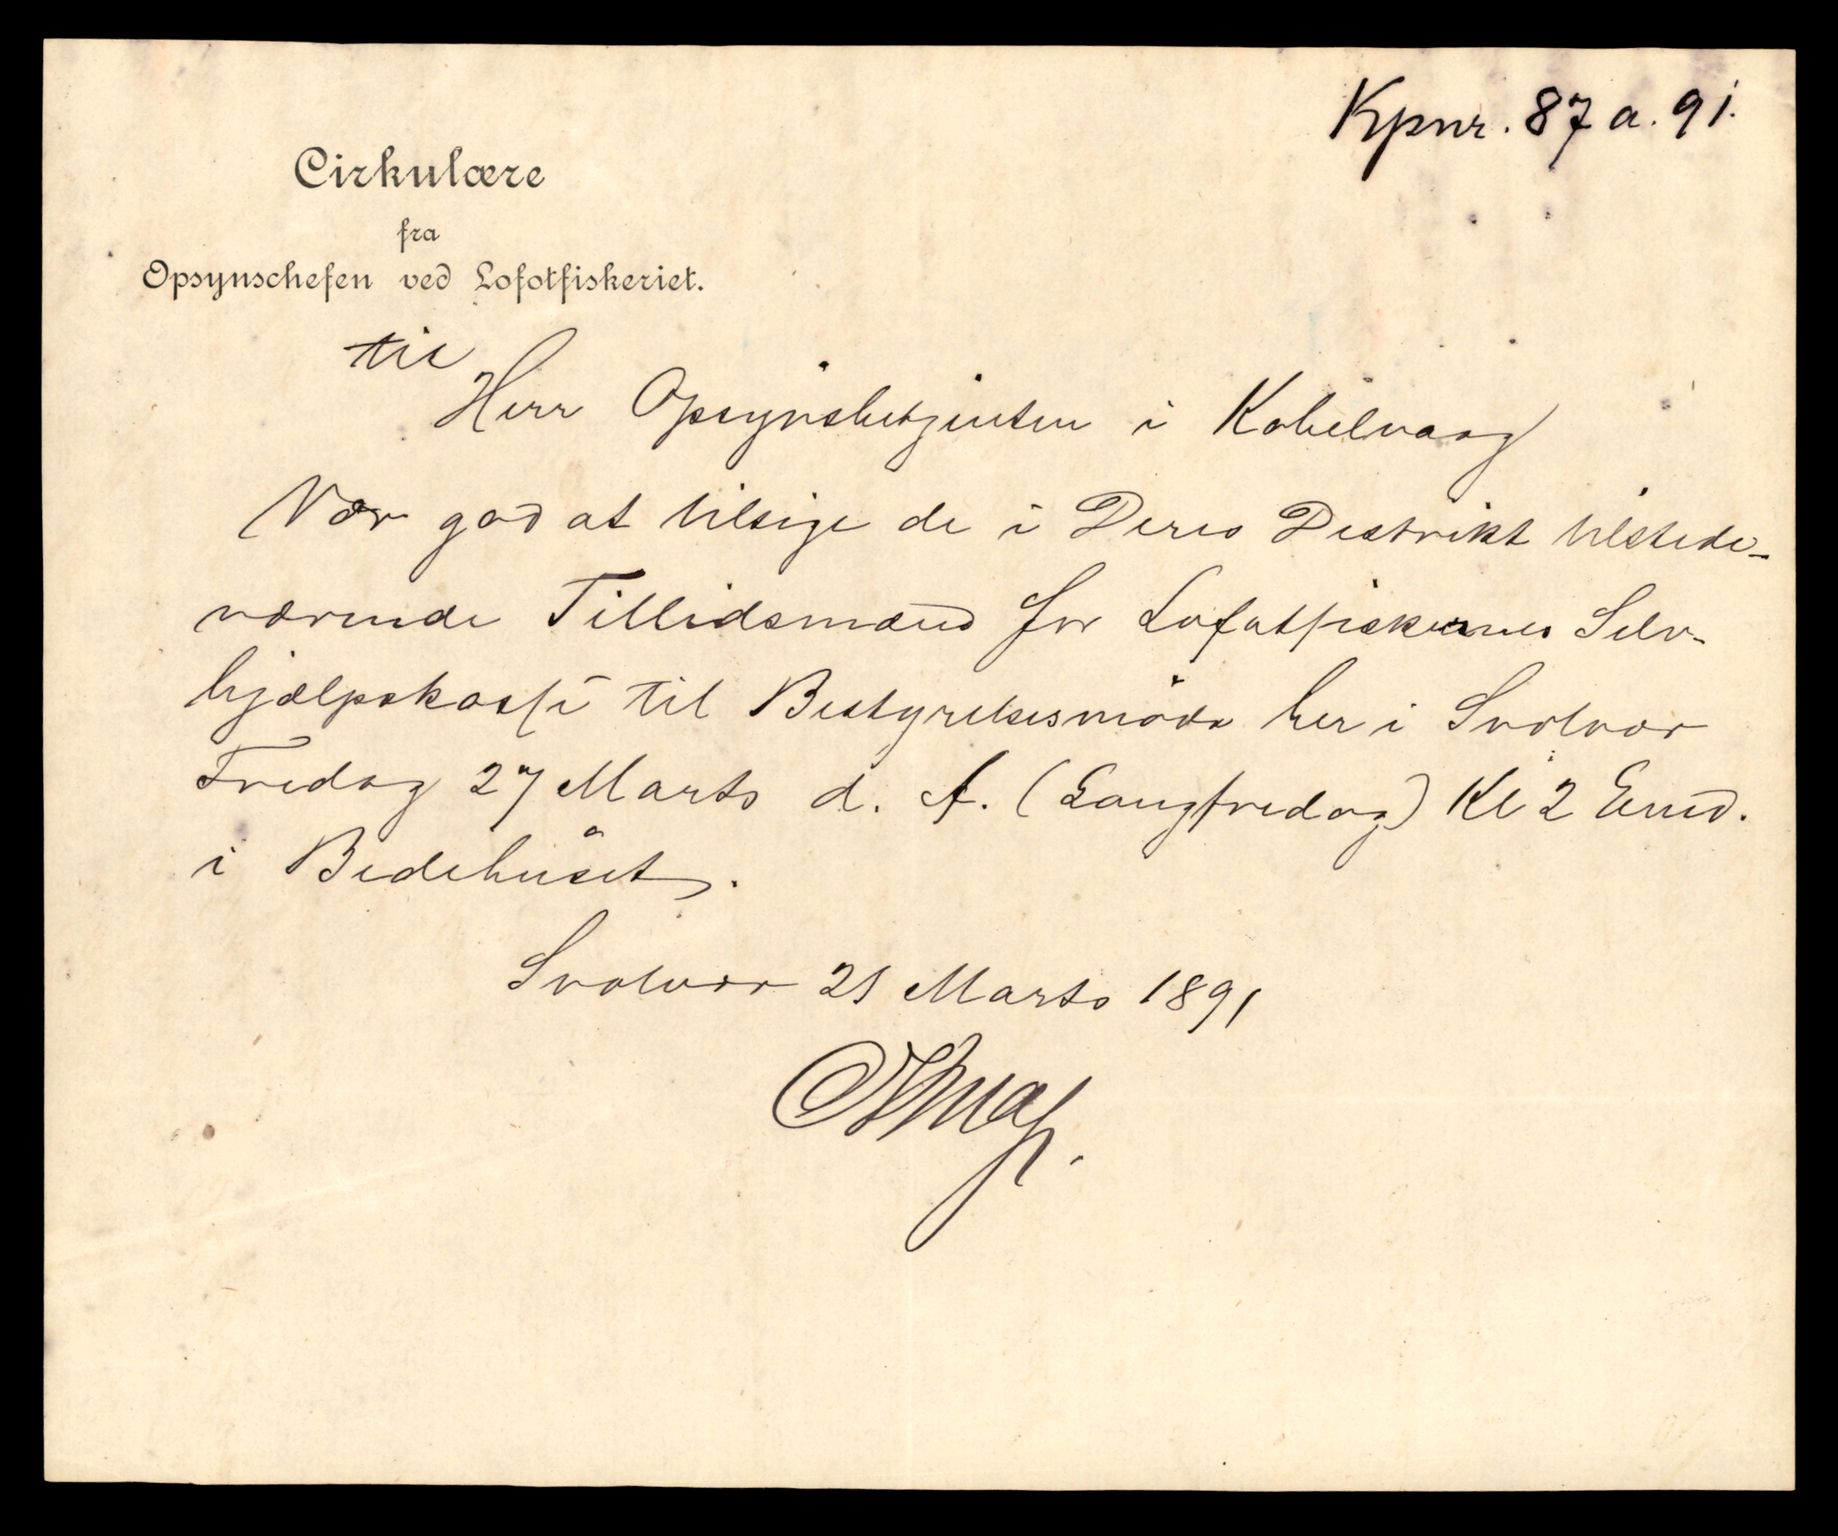 Kpnr. 87 a. 91.
Cirkulære
fra
Opsynschefen ved Lofotfiskeriet.
til
Herr Opsynsbetjenten i Kabelvaag
Vær god at tilsige de i Deres Distrikt tilstede-
værende Tillidsmænd for Lofotfiskernes Selv-
hjælpskasse til Bestyrelsesmöde her i Svolvær
Fredag 27 Marts d. A. (Langfredag) Kl 2 Emd.
i Bedehuset.
Svolvær 21 Marts 1891